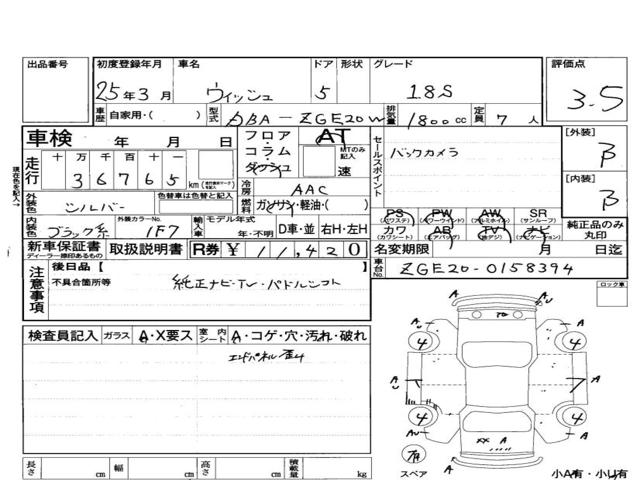 出品番号 初度登録年月 車名 ドア 形状 グレード 評価点
25年3月 ウィッシュ 5 1.8S 3.5
車歴 自家用・( ) 型式 DBA-ZGE20W 排気量 1800cc 定員 7人
車検 年 月 日 フロア・コラム・ダッシュ AT MTのみ記入 速 セールスポイント バックカメラ [外装] B
走行 十 万 千 百 十 一 36765 km 冷房 AAC [内装] B
外装色 シルバー 色替車は色替と記入 燃料 ガソリン・軽油・( )
PS (パワステ) PW (パワーウインド) AW (アルミホイル) SR (サンルーフ) 純正品のみ丸印
カワ (カワシート) AB (エアバッグ) TV (地デジ) ナビ (ナビゲーション)
内装色 ブラック系 外装カラーNo. 1F7 輸入車 モデル年式 年・不明 D車・並 右H・左H
新車保証書 ディーラー捺印あるもの 取扱説明書 R券 ¥11,420 名変期限 月 日迄
注意事項 後日品【 車台No. ZGE20-0158394
不具合箇所等 純正ナビ・TV・パドルシフト ロック車
検査員記入 ガラス A・X要ス 室内シート A・コゲ・穴・汚れ・破れ
エンドパネル歪み
4 4
A U A
4 4
AU A
XX A
有 スペア A 小A有・小U有
長さ cm 幅 cm 高さ cm 積載量 kg